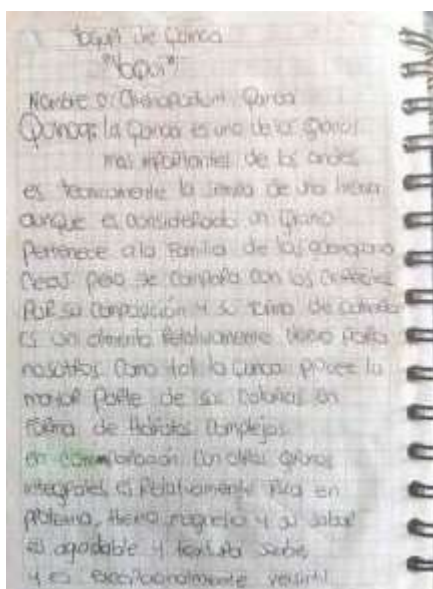 Yogurt de Quinoa
"Yoqui"
Nombre C: Chenopodium Quinoa
Quinoa: la Quinoa es uno de los granos
mas importantes de los andes
es tecnicamente la semilla de una hierba
aunque es considerado un grano
Pertenece a la Familia de las
pero se compara con los cereales
Por su composición y su forma de
es un alimento Relativamente Para
nosotros Como tal la posee la
mayor Parte de sus calorias en
forma de Hidratos Complejos
en comparación con otros granos
integrales es Relativamente rica en
proteina, Hierro magnesio y su sabor
es agradable y textura suave
y es excepcionalmente versatil